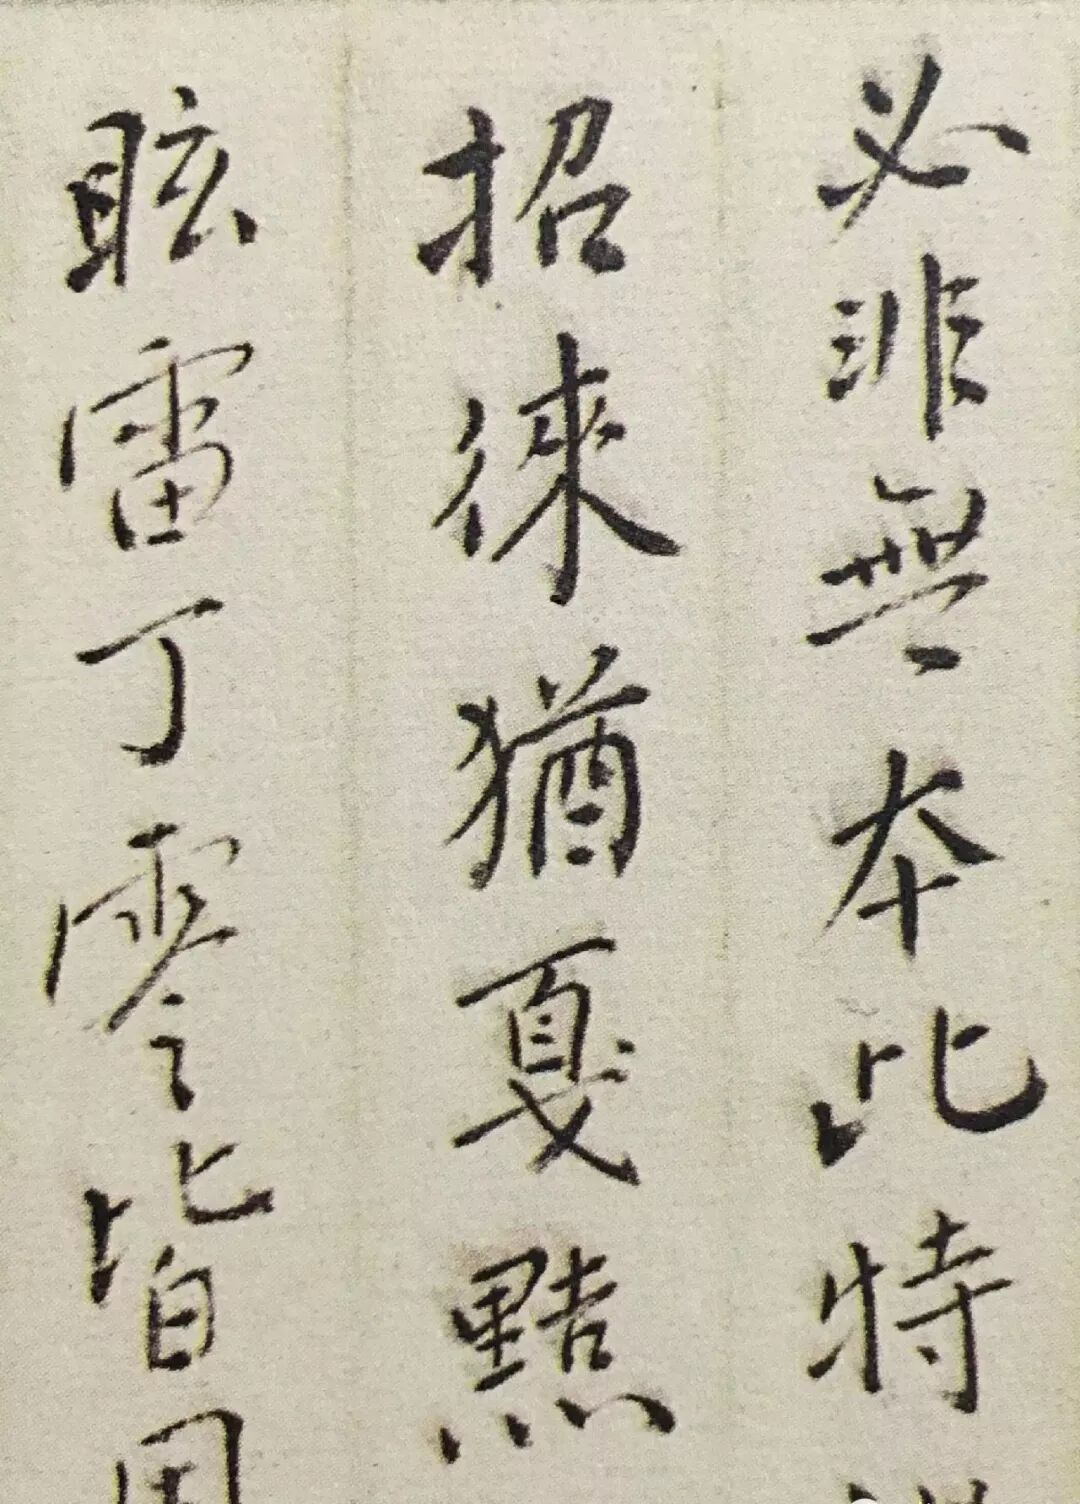 必非無本此特
招徠猶戛黠
眩雷丁零皆